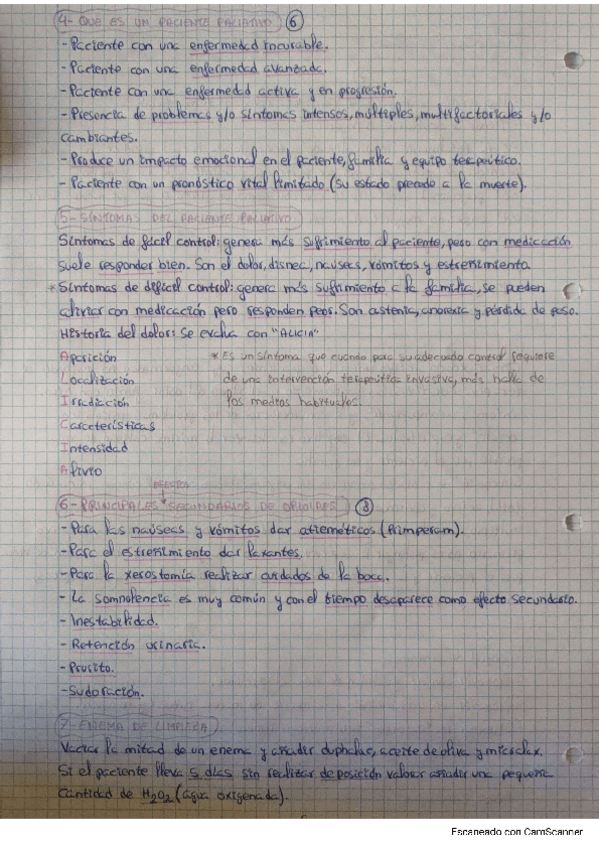 4- QUE ES UN PACIENTE PALIATIVO 6
- Paciente con una enfermedad incurable.
- Paciente con una enfermedad avanzada.
- Paciente con una enfermedad activa y en progresión.
- Presencia de problemas y/o síntomas intensos, múltiples, multifactoriales y/o
cambiantes.
- Produce un impacto emocional en el paciente, familia y equipo terapeútico.
- Paciente con un pronóstico vital limitado (su estado precede a la muerte).
5- SÍNTOMAS DEL PACIENTE PALIATIVO
Síntomas de fácil control: genera más sufrimiento al paciente, pero con medicación
suele responder bien. Son el dolor, disnea, nauseas, vómitos y estreñimiento.
* Síntomas de difícil control: genera más sufrimiento a la familia, se pueden
aliviar con medicación pero responden peor. Son astenia, anorexia y pérdida de peso.
Historia del dolor: Se evalua con "ALICIA"
Aparición * Es un síntoma que cuando para su adecuado control requiere
Localización de una intervención terapeútica invasiva, más halla de
Irradiación los medios habituales.
Características
Intensidad
Alivio
EFECTOS
6- PRINCIPALES SECUNDARIOS DE OPIOIDES 8
- Para las naúseas y vómitos dar atieméticos (Primperam).
- Para el estreñimiento dar laxantes.
- Para la xerostomía realizar cuidados de la boca.
- La somnolencia es muy común y con el tiempo desaparece como efecto secundario.
- Inestabilidad.
- Retención urinaria.
- Prurito.
- Sudoración.
7- ENEMA DE LIMPIEZA
Vaciar la mitad de un enema y añadir duphalac, aceite de oliva y micralax.
Si el paciente lleva 5 días sin realizar deposición valorar añadir una pequeña
cantidad de H2O2 (agua oxigenada).
Escaneado con CamScanner